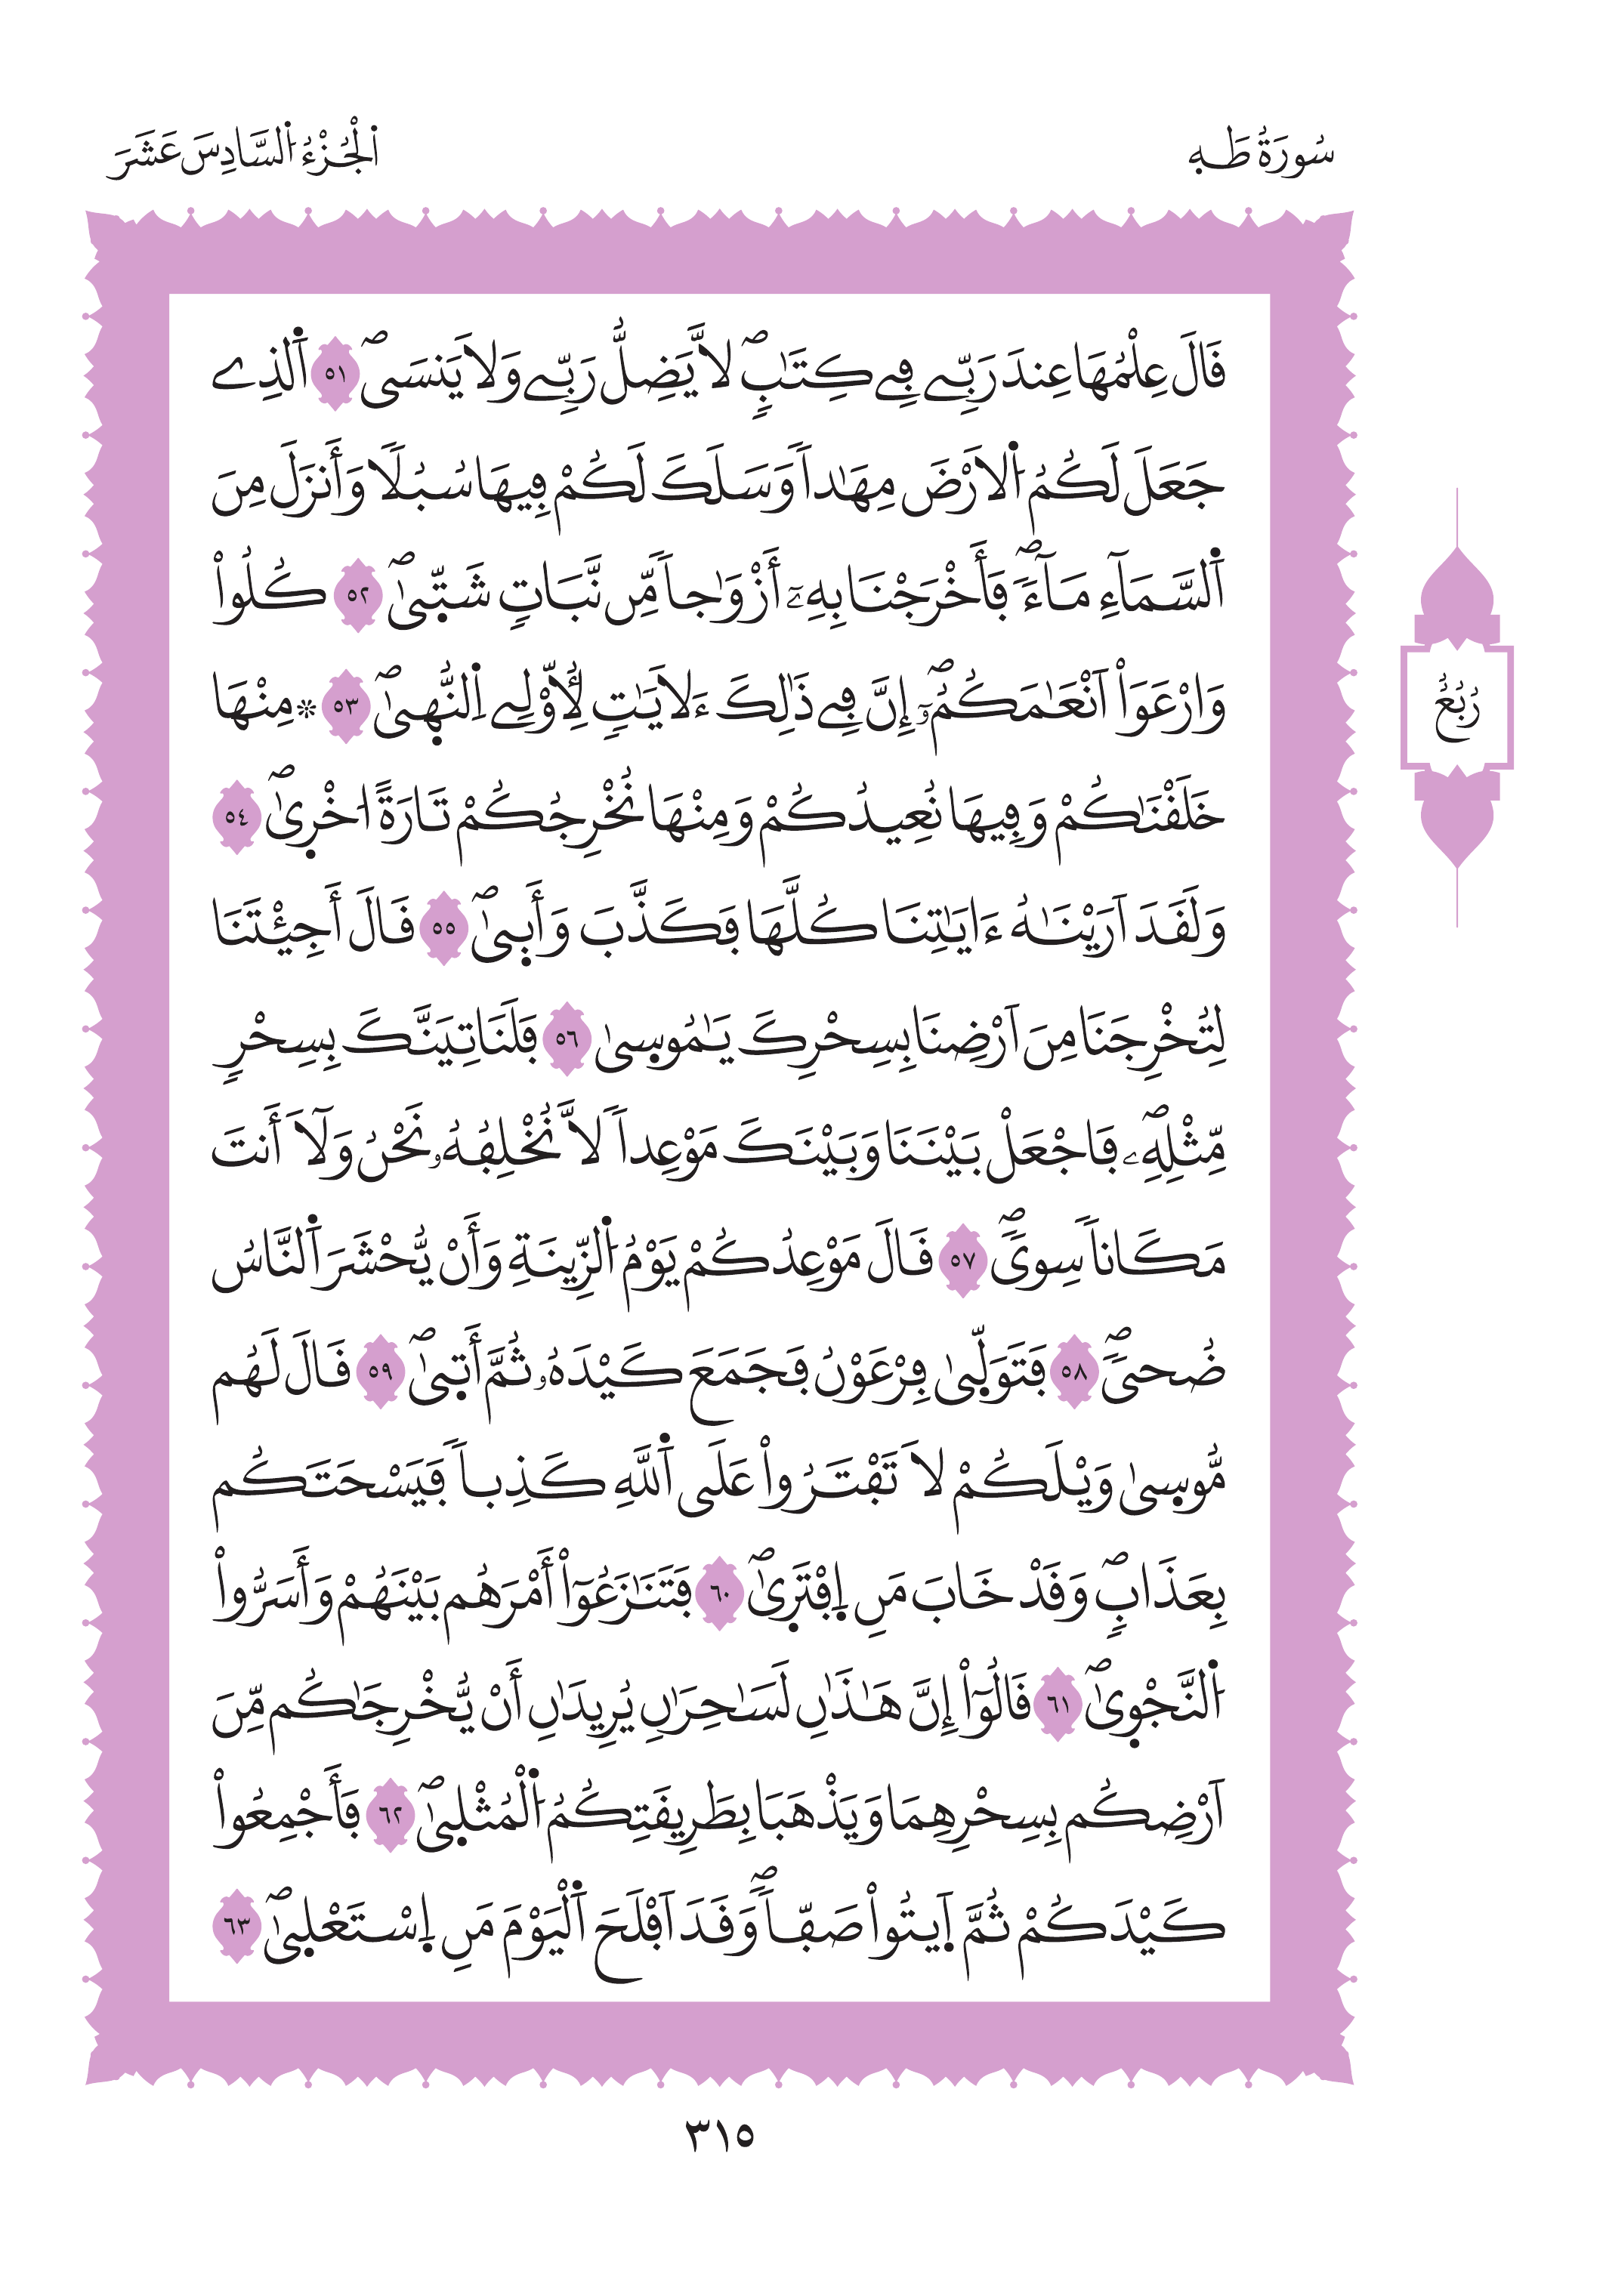 سُورَةُ طَهِ
اُ۬لْجُزْءُ اُ۬لسَّادِسَ عَشَرَ
قَالَ عِلْمُهَا عِندَ رَبِّے فِے كِتَٰبٖۖ لَّا يَضِلُّ رَبِّے وَلَا يَنسَيۖ ٥١ اَ۬لذِے
جَعَلَ لَكُمُ اُ۬لَارْضَ مِهَٰداٗ وَسَلَكَ لَكُمْ فِيهَا سُبُلاٗ وَأَنزَلَ مِنَ
اَ۬لسَّمَآءِ مَآءٗۖ فَأَخْرَجْنَا بِهِۦٓ أَزْوَٰجاٗ مِّن نَّبَاتٖ شَتّ۪يٰۖ ٥٢ كُلُواْ
وَارْعَوَاْ اَنْعَٰمَكُمُۥٓۖ إِنَّ فِے ذَٰلِكَ ءَلَايَٰتٖ لِّأُوْلِے اِ۬لنُّه۪يٰۖ ٥٣ ۞ مِنْهَا
خَلَقْنَٰكُمْ وَفِيهَا نُعِيدُكُمْ وَمِنْهَا نُخْرِجُكُمْ تَارَةً اُخْر۪يٰۖ ٥٤
وَلَقَدَ اَرَيْنَٰهُ ءَايَٰتِنَا كُلَّهَا فَكَذَّبَ وَأَب۪يٰۖ ٥٥ قَالَ أَجِئْتَنَا
لِتُخْرِجَنَا مِنَ اَرْضِنَا بِسِحْرِكَ يَٰمُوس۪يٰ ٥٦ فَلَنَاتِيَنَّكَ بِسِحْرٖ
مِّثْلِهِۦۖ فَاجْعَلْ بَيْنَنَا وَبَيْنَكَ مَوْعِداٗ لَّا نُخْلِفُهُۥ نَحْنُ وَلَآ أَنتَ
مَكَاناٗ سِويٗۖ ٥٧ قَالَ مَوْعِدُكُمْ يَوْمُ اُ۬لزِّينَةِ وَأَنْ يُّحْشَرَ اَ۬لنَّاسُ
ضُحيٗۖ ٥٨ فَتَوَلّ۪يٰ فِرْعَوْنُ فَجَمَعَ كَيْدَهُۥ ثُمَّ أَت۪يٰۖ ٥٩ قَالَ لَهُم
مُّوس۪يٰ وَيْلَكُمْ لَا تَفْتَرُواْ عَلَي اَ۬للَّهِ كَذِباٗ فَيَسْحَتَكُم
بِعَذَابٖۖ وَقَدْ خَابَ مَنِ اِ۪فْتَر۪يٰۖ ٦٠ فَتَنَٰزَعُوٓاْ أَمْرَهُم بَيْنَهُمْ وَأَسَرُّواْ
اُ۬لنَّجْو۪يٰۖ ٦١ قَالُوٓاْ إِنَّ هَٰذَٰنِ لَسَٰحِرَٰنِ يُرِيدَٰنِ أَنْ يُّخْرِجَٰكُم مِّنَ
اَرْضِكُم بِسِحْرِهِمَا وَيَذْهَبَا بِطَرِيقَتِكُمُ اُ۬لْمُثْل۪يٰۖ ٦٢ فَأَجْمِعُواْ
كَيْدَكُمْ ثُمَّ اَ۪يتُواْ صَفّاٗۖ وَقَدَ اَفْلَحَ اَ۬لْيَوْمَ مَنِ اِ۪سْتَعْل۪يٰۖ ٦٣
رُبُعُ
٣١٥